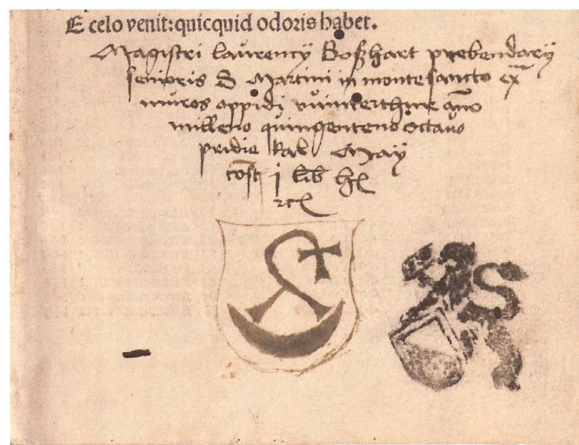 E celo venit: quicquid odoris habet.
Magistri laurencij Boßhart prebendarij
senioris S Martini in monte sancto ex̃
muros oppidj vuinterthur año
milleno quingenteno octauo
pridie kał Maij
coñst j lib hł